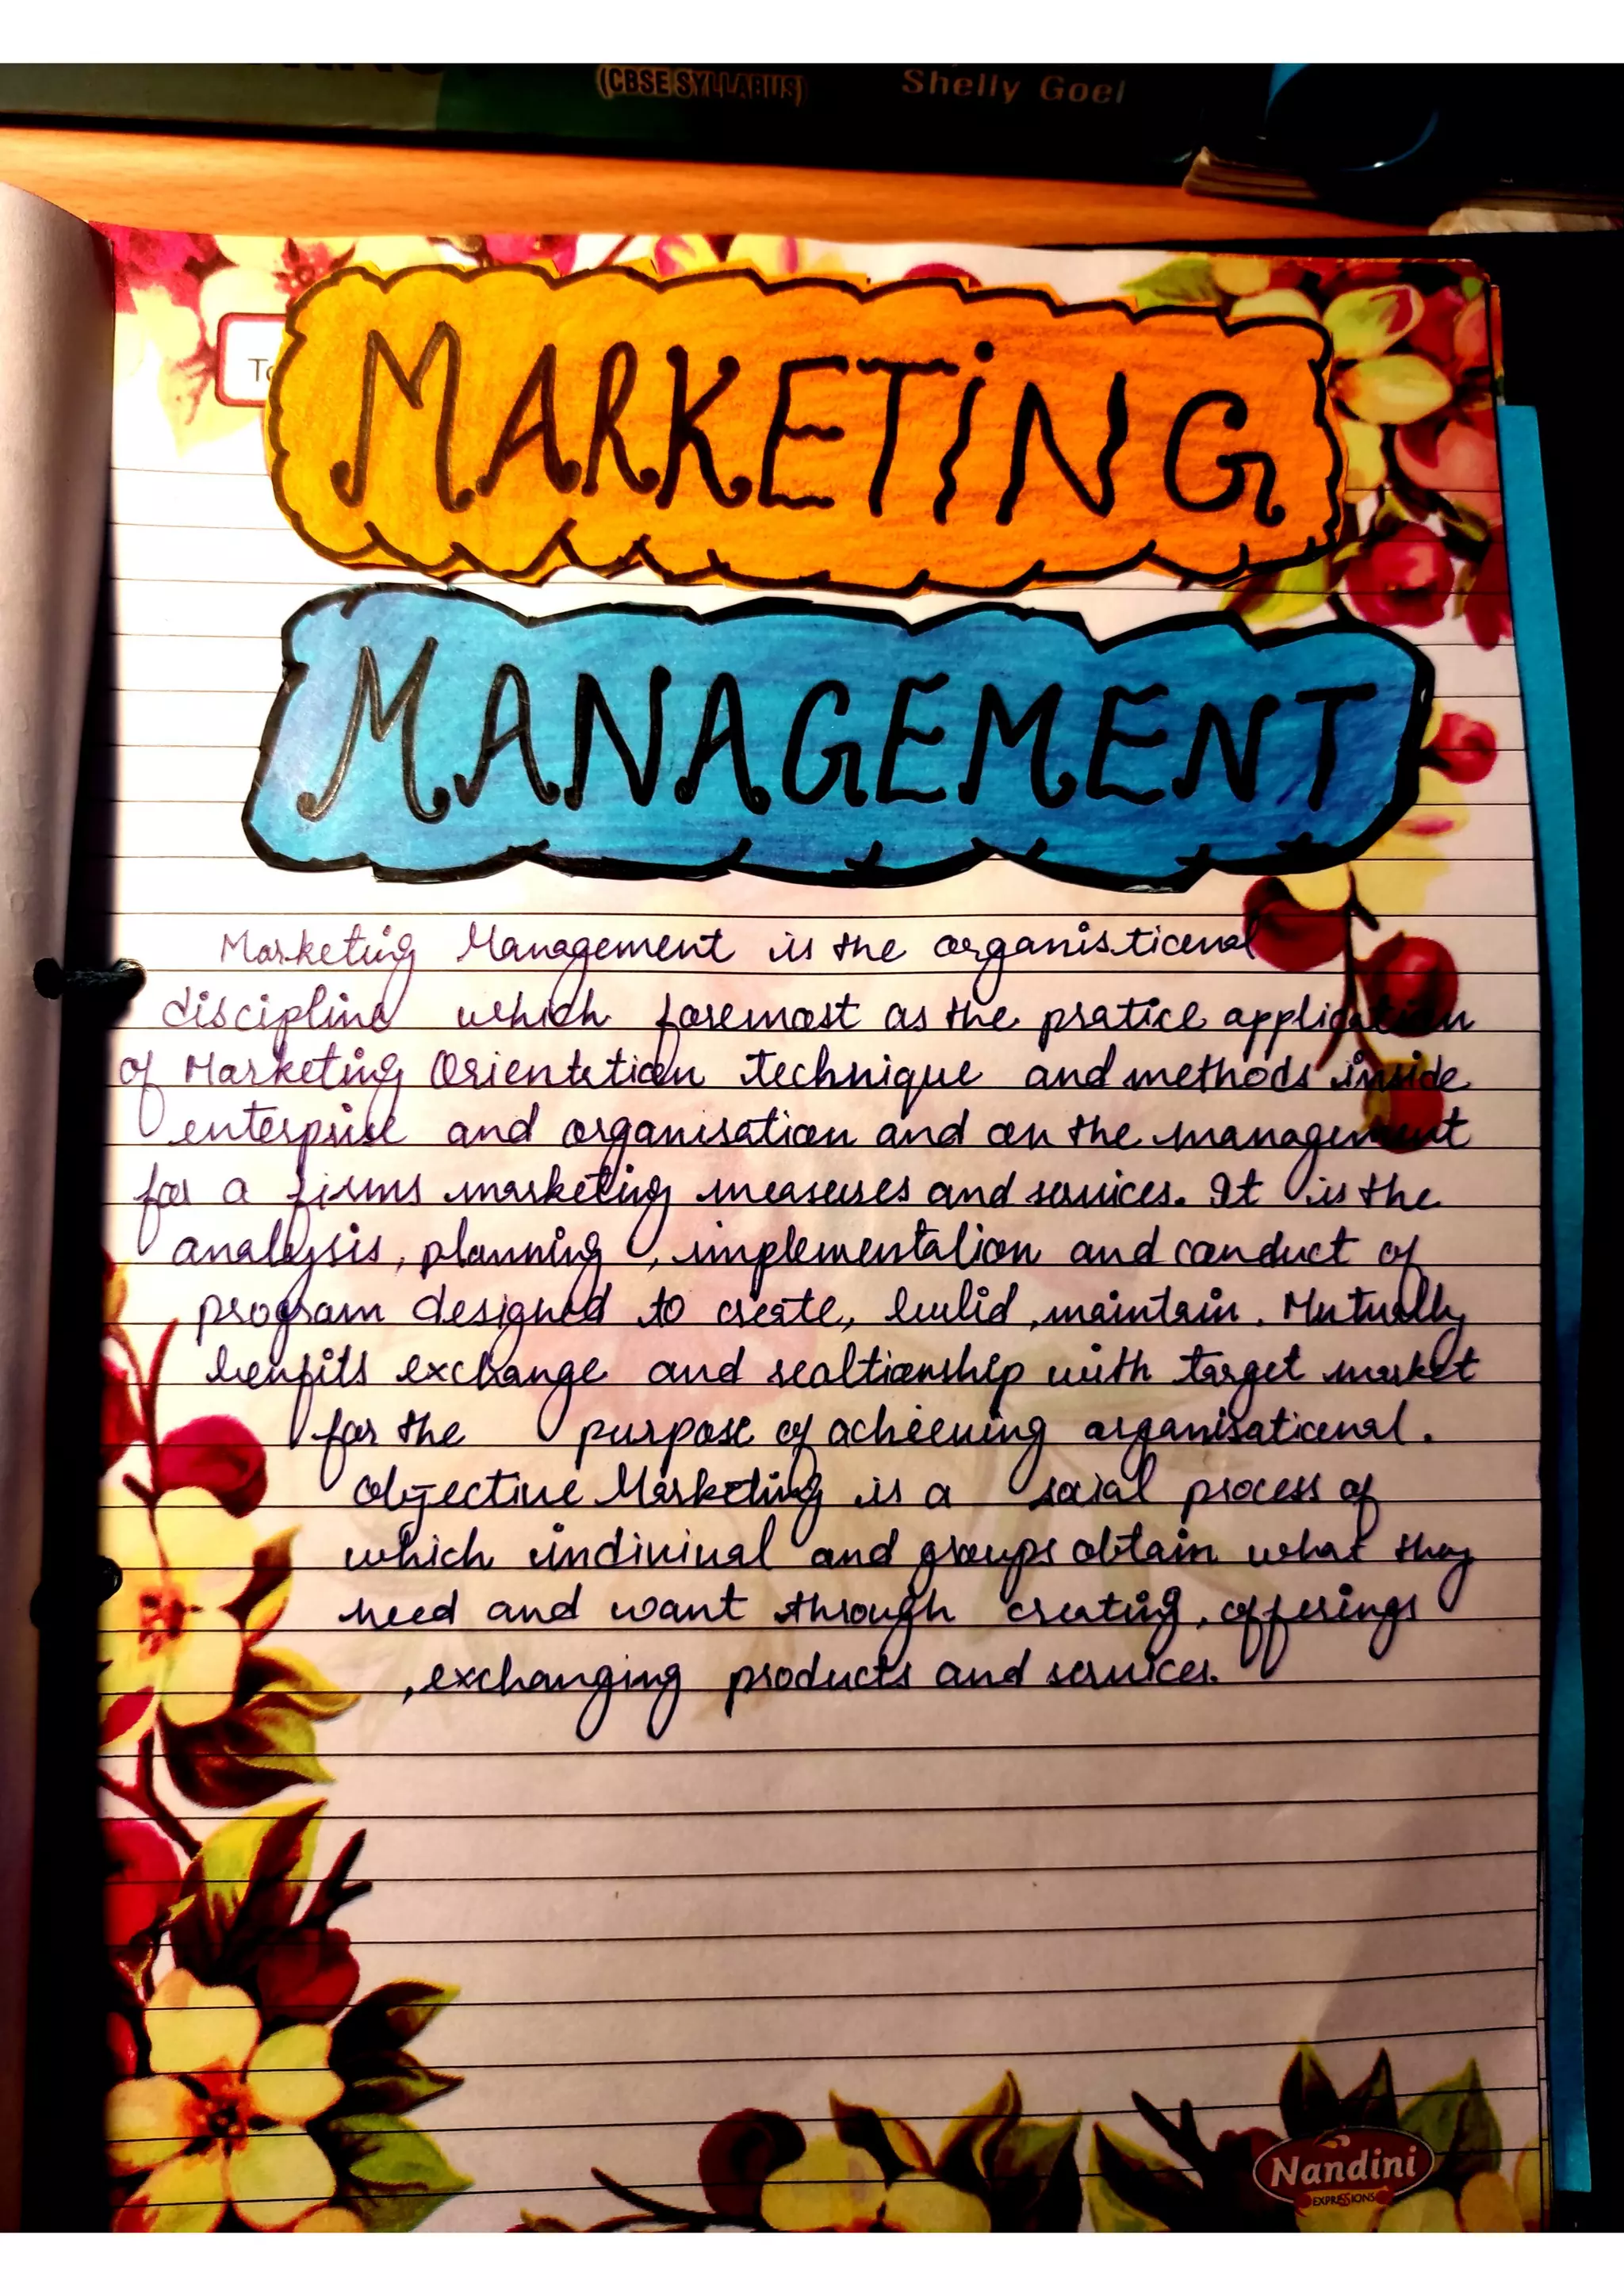 (CBSE SYLLABUS) Shelly Goel
MARKETiNG
MANAGEMENT
Marketing Management is the organisticonal
discipline which foremost as the pratice application
of Marketing Orientetion technique and methods inside
enterprise and organisation and on the management
for a firms marketing measures and services. It is the
analysis, planning, implementation and conduct of
program designed to create, bulid, maintain. Mutually
benfits exchange and realtionship with target market
for the purpose of achieeving organisational.
objective Marketing is a social process of
which indiviual and groups obtain what they
need and want through creating, offerings
, exchanging products and services.
Nandini
EXPRESSIONS